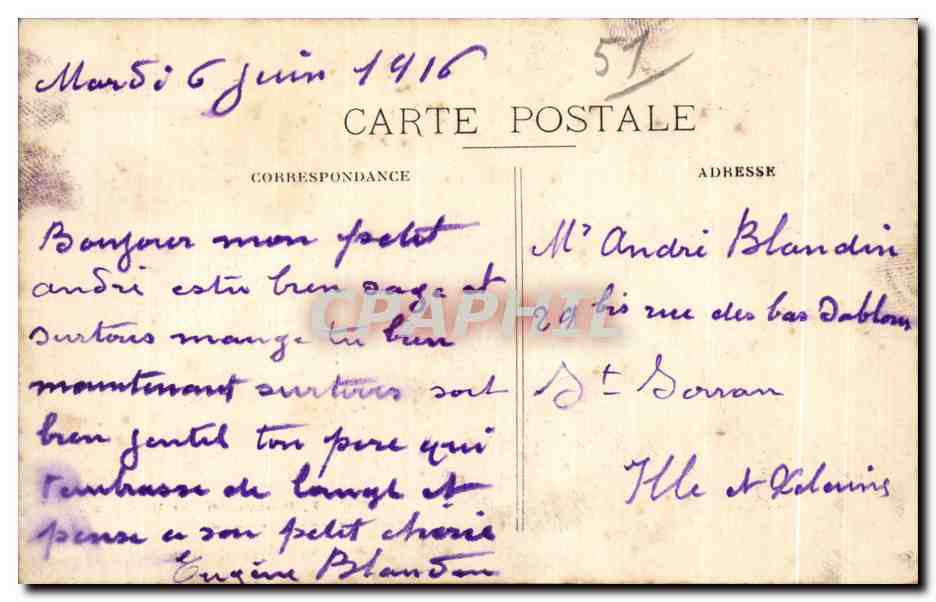 Mardi 6 juin 1916
51
CARTE POSTALE
CORRESPONDANCE
ADRESSE
Bonjour mon petit
andré estu bien sage et
surtous mange tu bien
maintenant surtous soit
bien gentil ton pere qui
t'embrasse de et
pense a son petit cherie
Eugène Blandin
Mr André Blandin
29 bis rue des bas Sablons
St Servan
Ille et Vilaine
CPAPHIL